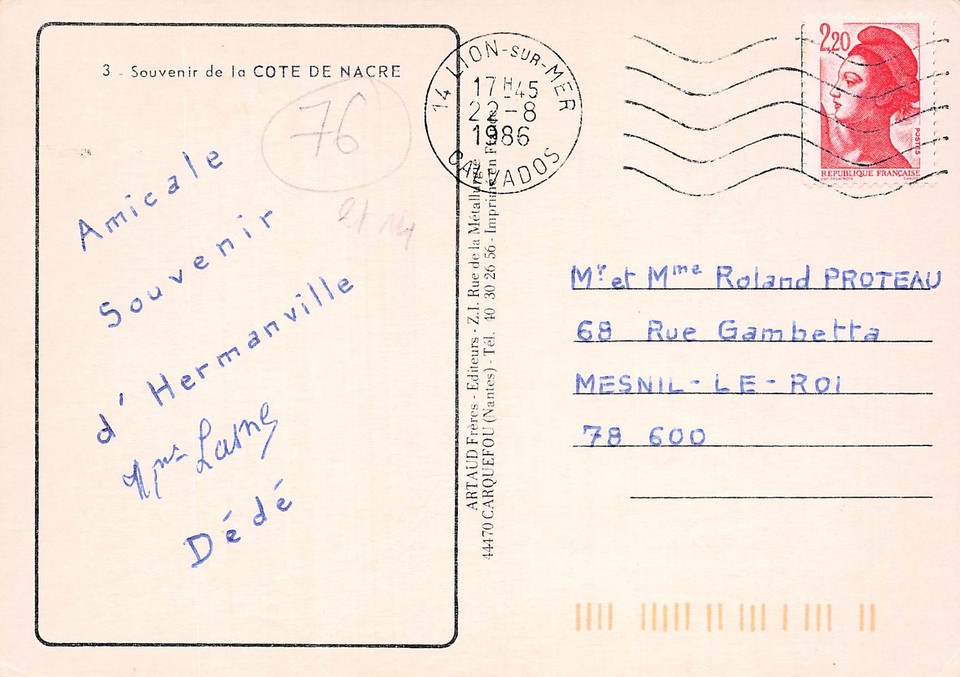 3 - Souvenir de la COTE DE NACRE
76
Amicale
Souvenir
d'Hermanville
Dédé
14 LION-SUR-MER
17H45
22-8
1986
CALVADOS
ARTAUD Frères - Editeurs - Z.I. Rue de la Métallurgie
44470 CARQUEFOU (Nantes) - Tél. 40 30 26 56 - Imprimé en France
2,20
POSTES
REPUBLIQUE FRANÇAISE
Mr et Mme Roland PROTEAU
68 Rue Gambetta
MESNIL-LE-ROI
78 600